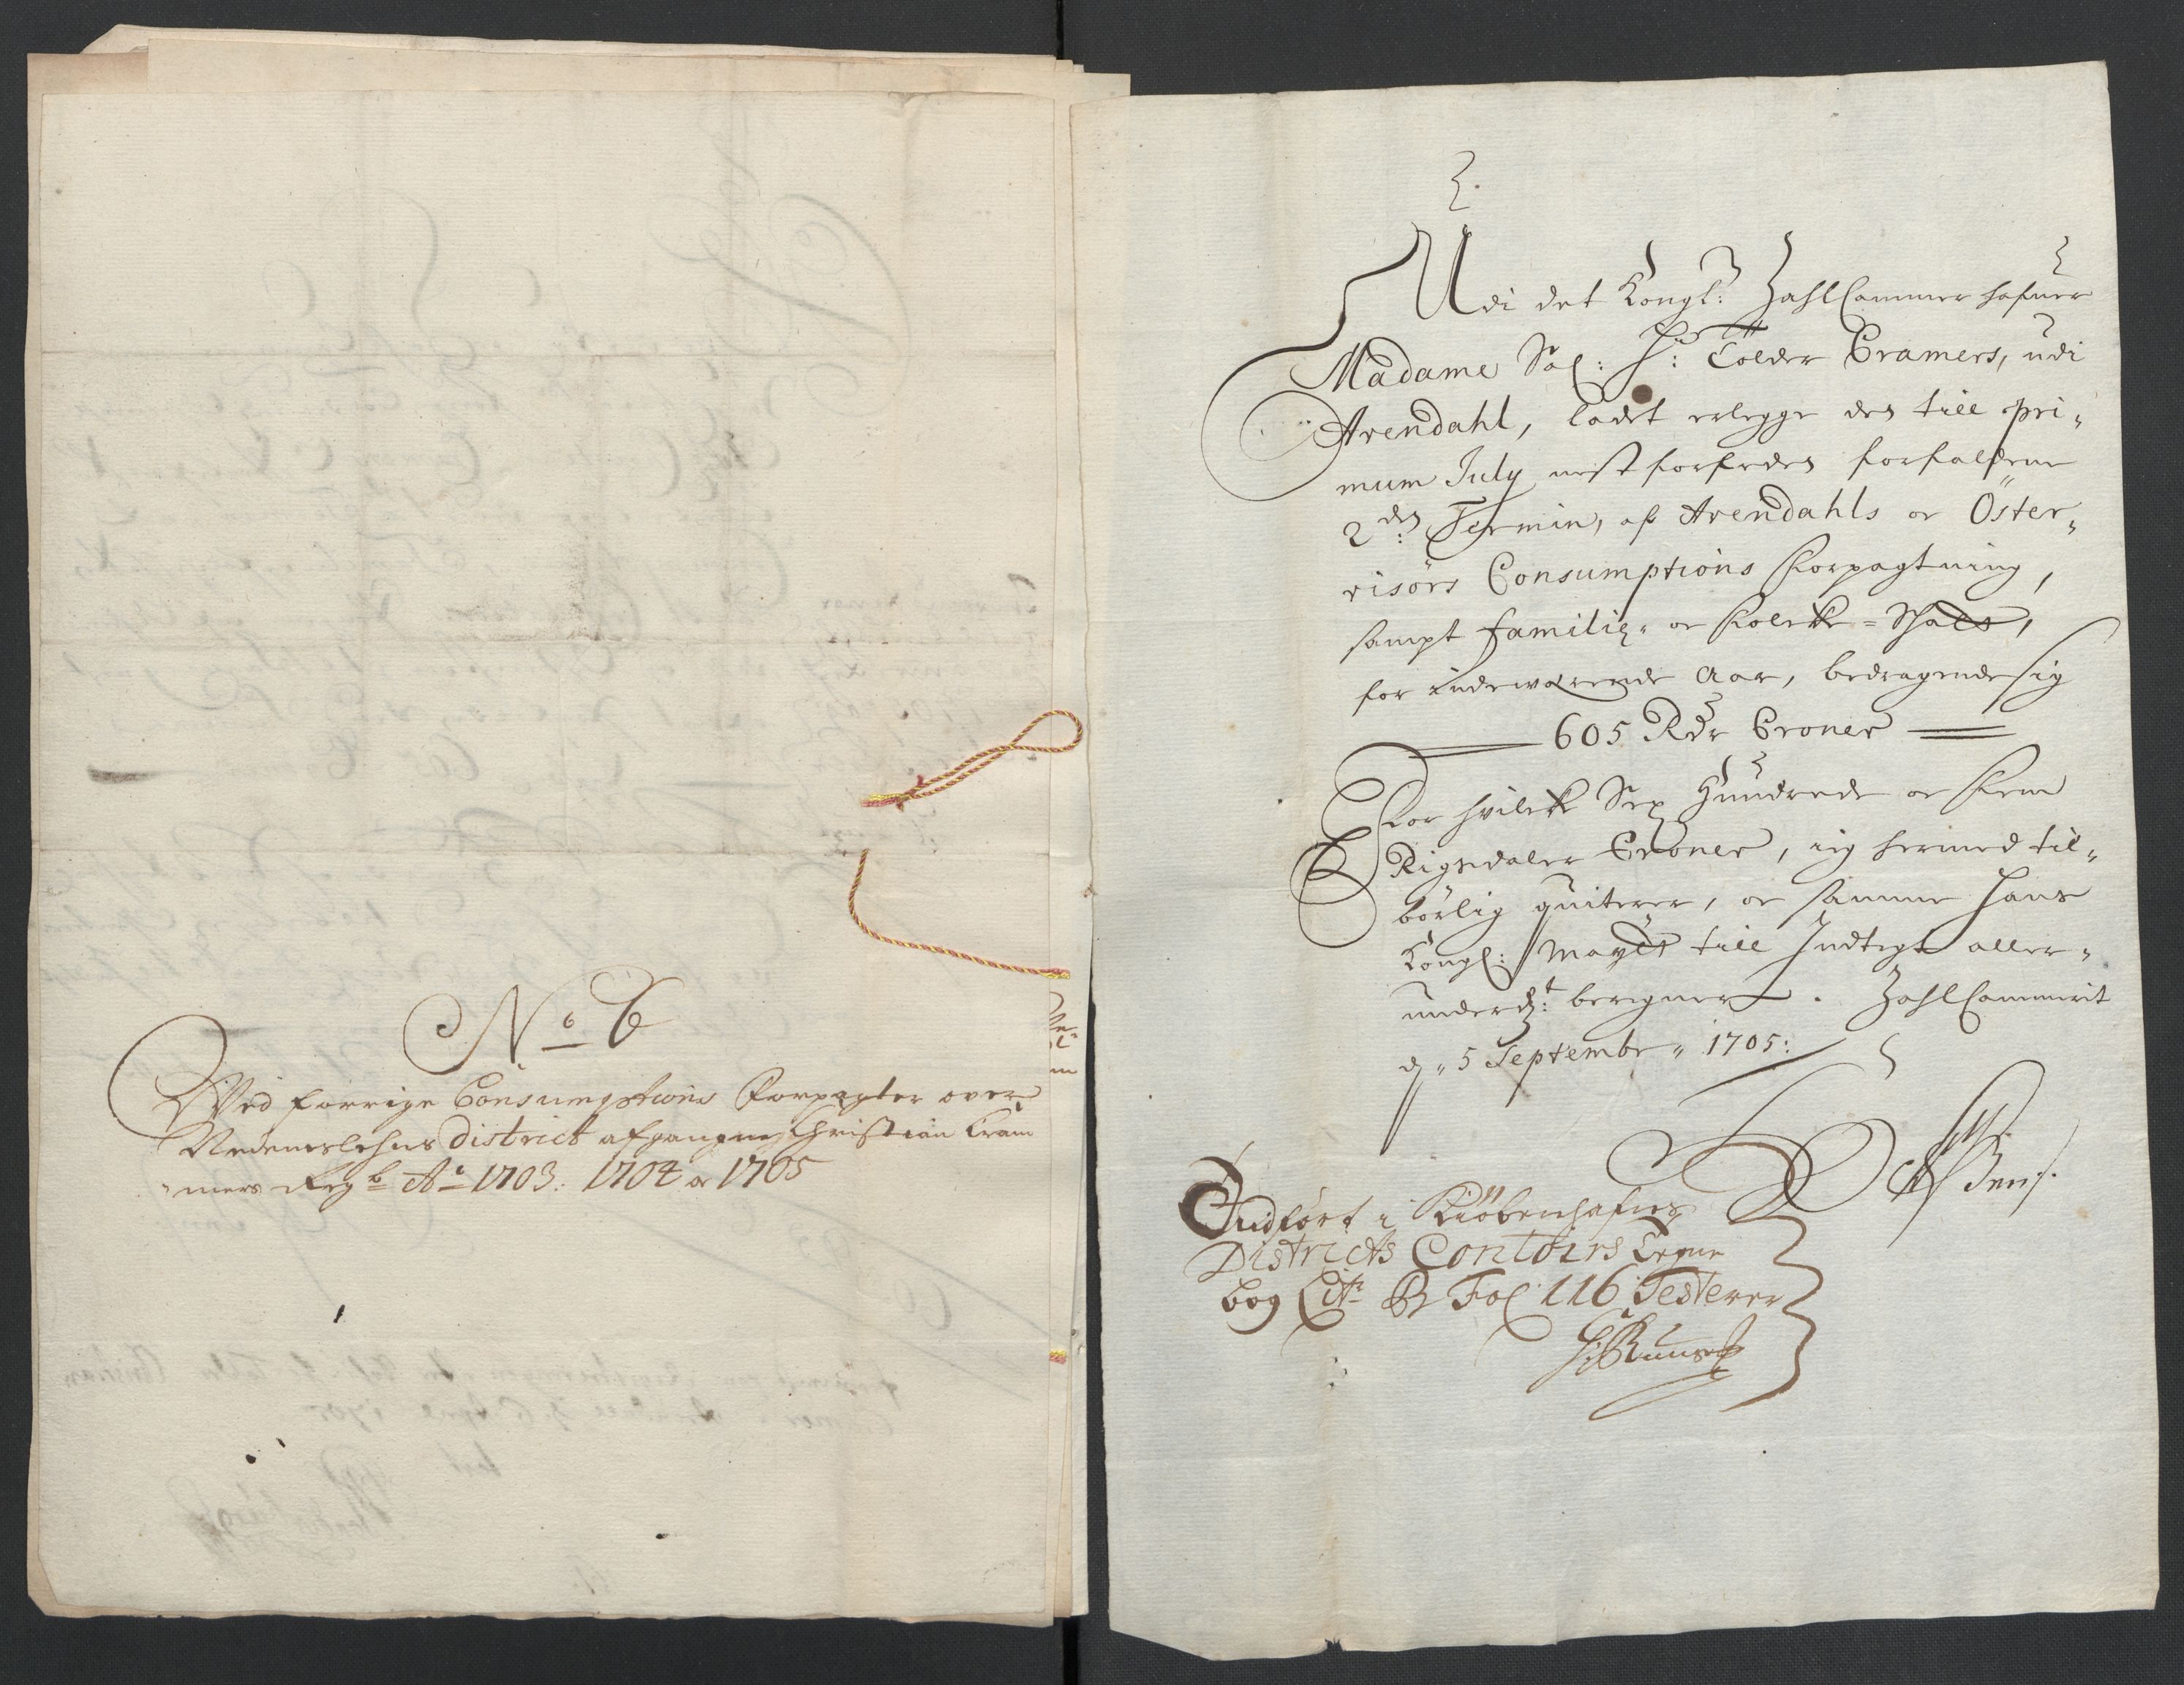 No 6
Ved forrige Consumptions Forpagter over
Nedenes lehns District afgangne Christian Cram
"mers Regb Ao 1703: 1704 oc 1705
Udi det Kongl: ZahlCammer hafuer
Madame Sal: Hr: Tolder Cramers, udi
Arendahl, ladet erlegge den till pri„
mum July nest forfeden forfaldene
2den Termin, af Arendahls oc Öster„
risörs Consumptions Forpagtning,
sampt familie- oc Folcke-Schatt,
for indewærende Aar, bedragende sig
605 Rdr Croner
For hvilcke Sex Hundrede oc Fem
Rigsdaler Croner, ieg hermed til„
börlig quiterer, oc samme Hans
Kongl: Maytt till Indtegt aller„
underdt: beregner. ZahlCammerit
d„ 5 Septembr„ 1705:
Indfört i Kiöbenhafns
Districts Contoirs Tegne
bog Litr B Fol 116 Testerer